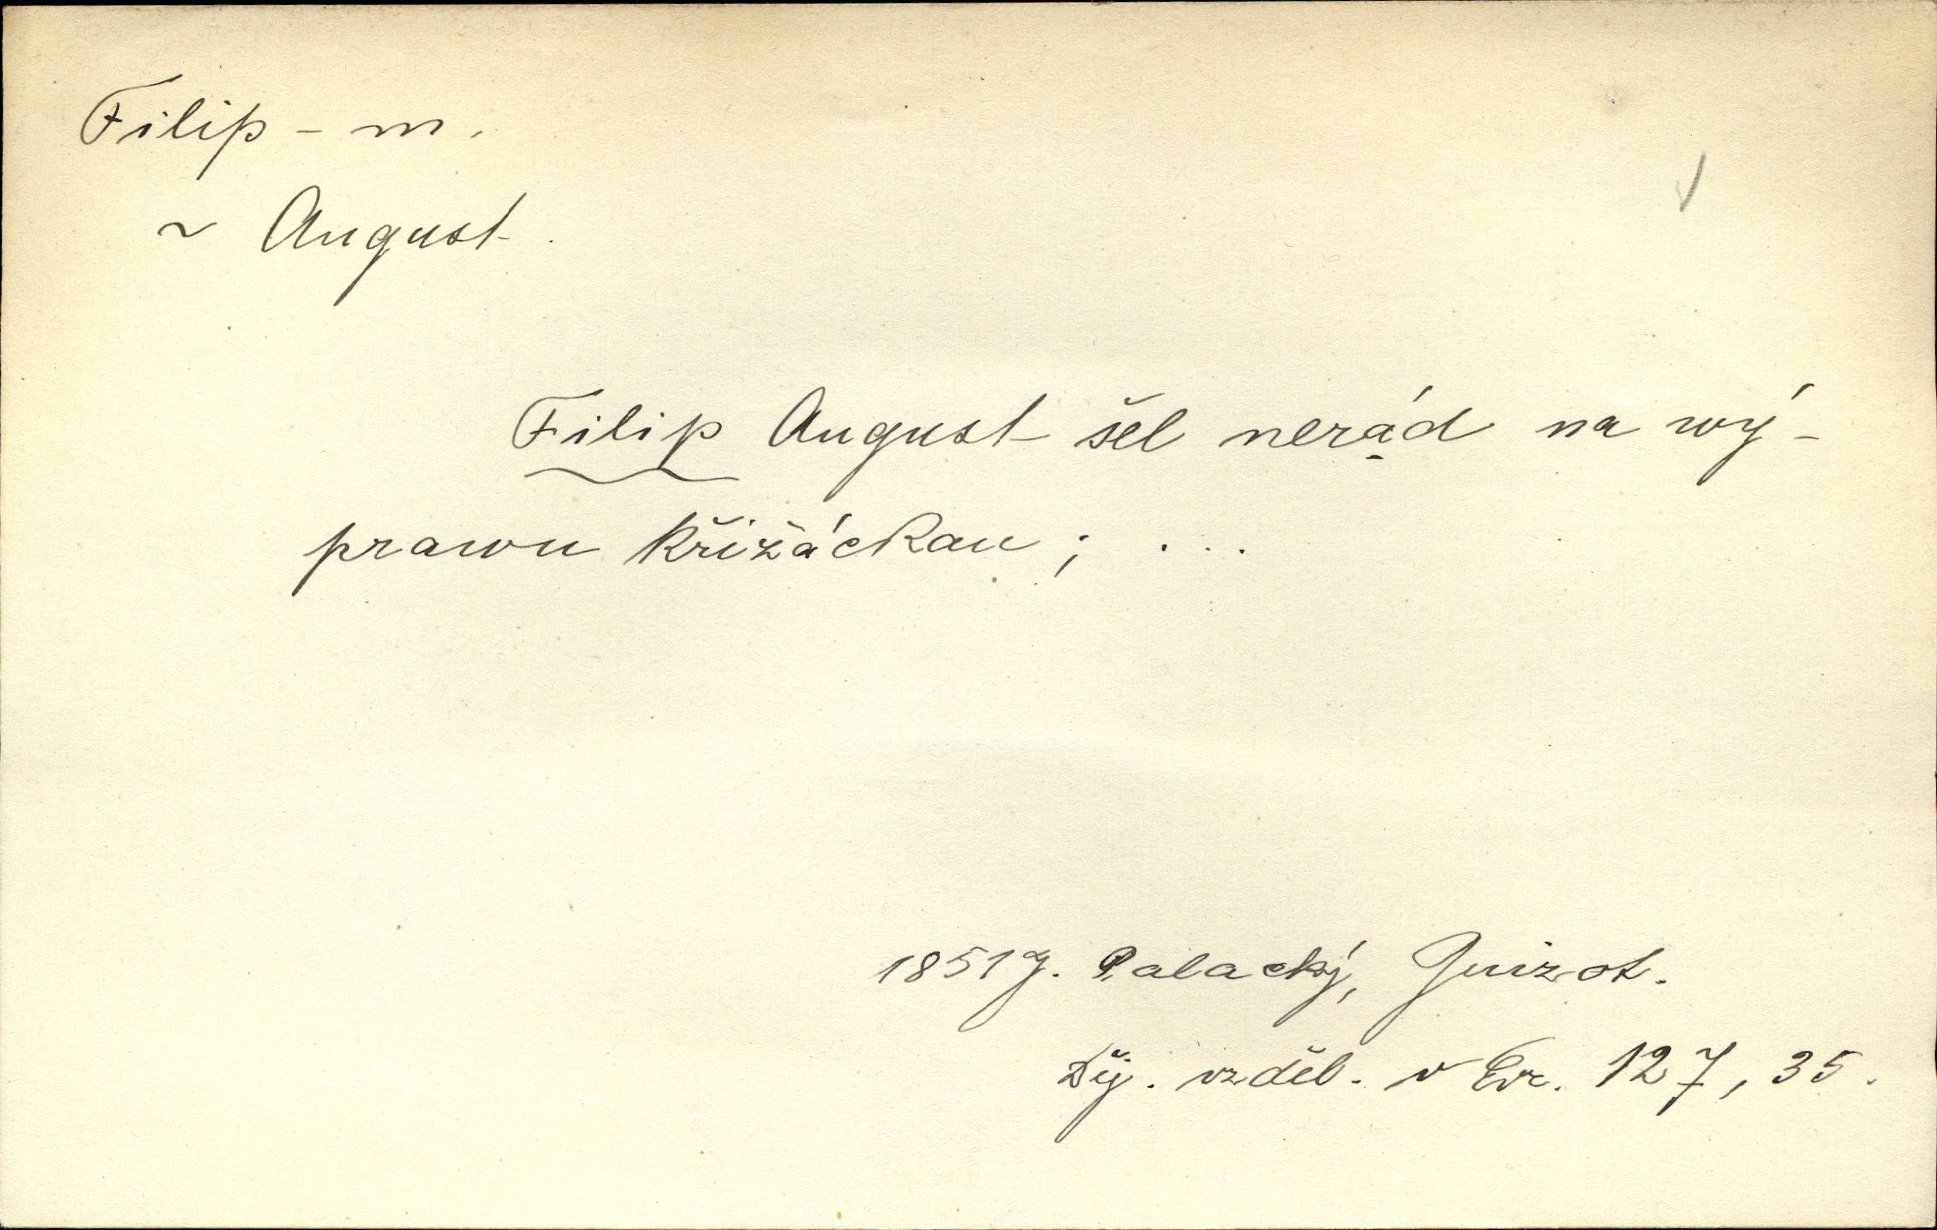 Filip - m.
~ August.
Filip August šel nerád na wý-
prawu křižáckau; ...
1851 J. Palacký, Guizot.
Děj. vzděl. v Evr. 127, 35.